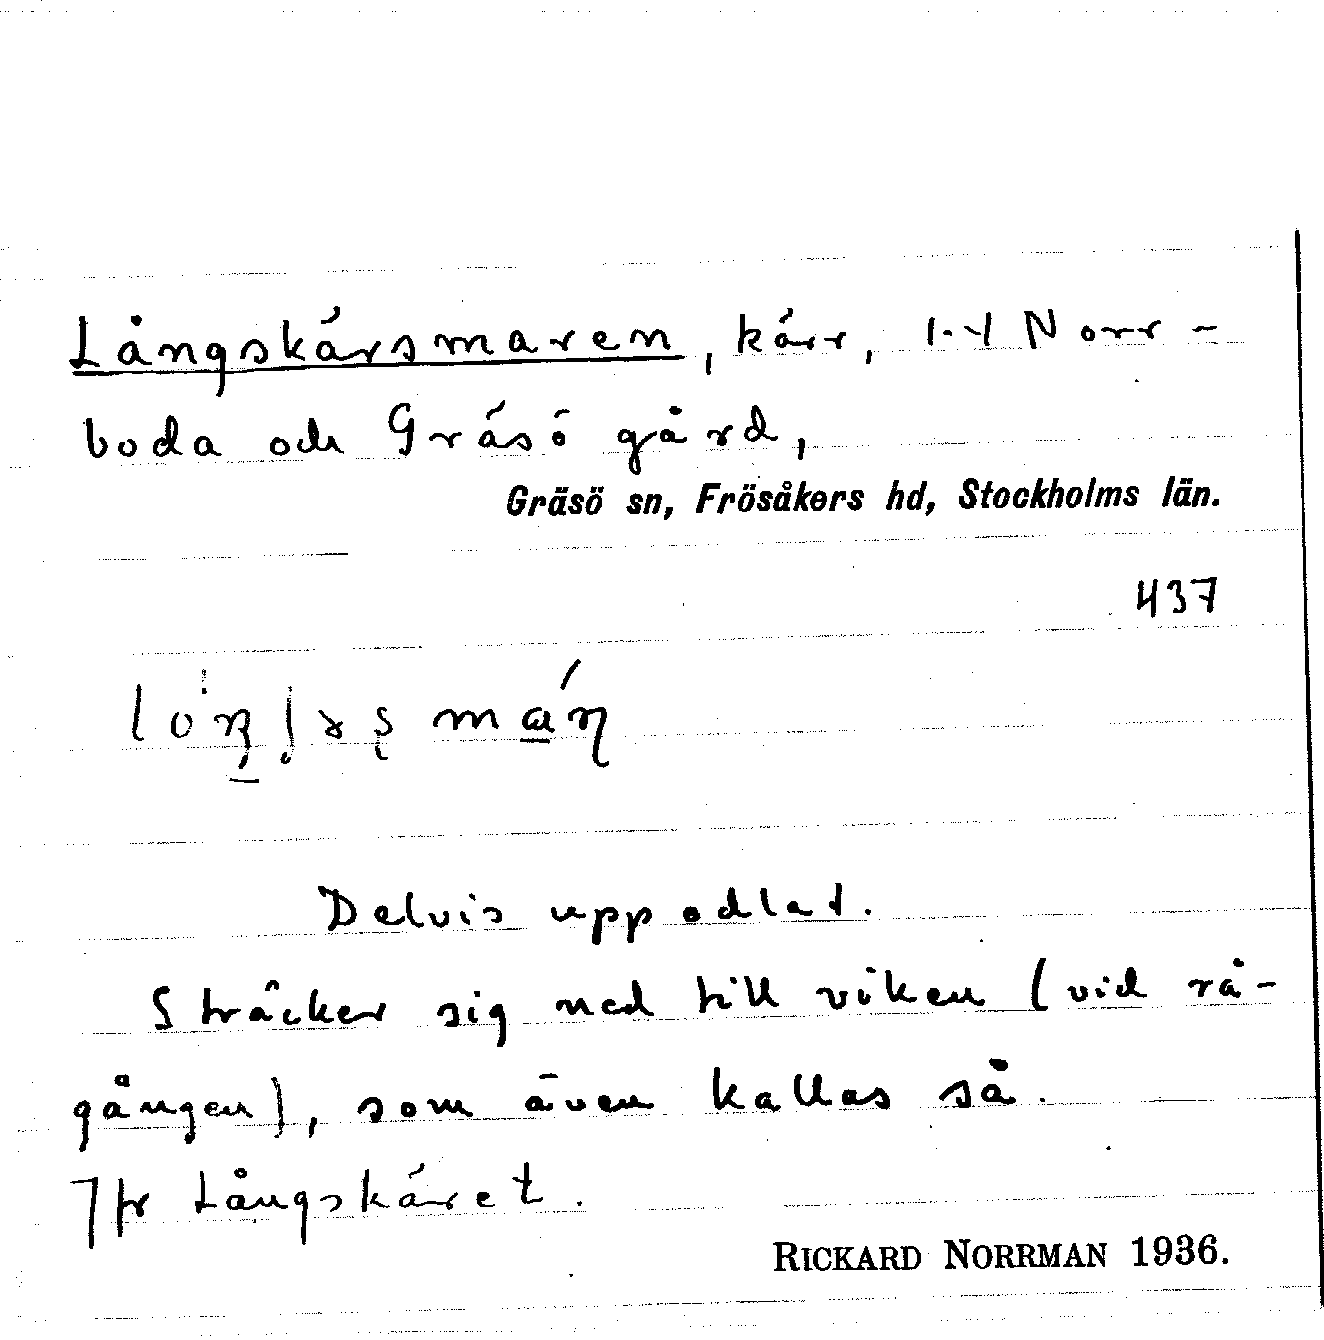 Långskärsmaren, kärr, 1-4 Norr-
boda och Gräsö gård,
Gräsö sn, Frösåkers hd, Stockholms län.
437
Delvis uppodlat.
Sträcker sig ned till viken (vid rå-
gången), som även kallas så.
Jfr Långskäret.
RICKARD NORRMAN 1936.